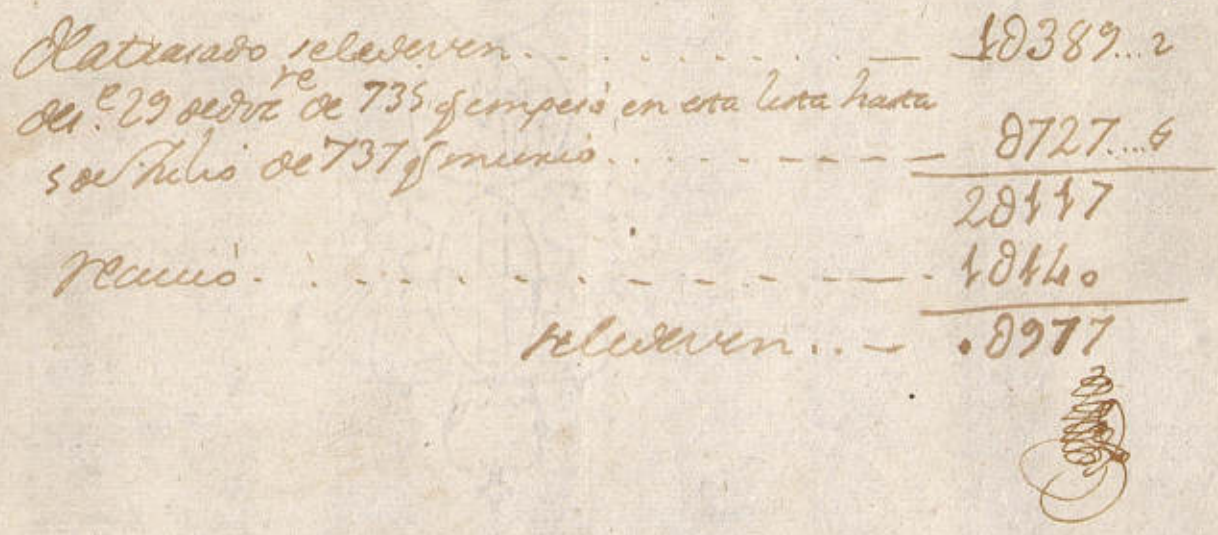 Deatrasado seledeven . . . . . . . . — 1U389...2
des.e 29 dedizre de 735 q empesó en esta lista hasta
5 de Julio de 737 q murio . . . . . . . . — U727....6
2U117
reciuió . . . . . . . . . . — 1U140
seledeven . . — .U977